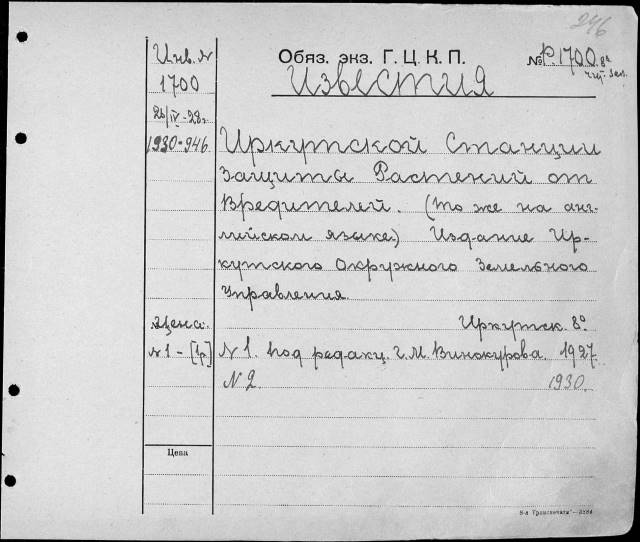 246
Инв. №
1700
26/IV-28г.
1930-946
Обяз. экз. Г. Ц. К. П.
№ Р.1700.8°
чит. зал.
Известия
Иркутской Станции
Защиты Растений от
Вредителей. (То же на анг-
лийском языке.) Издание Ир-
кутского Окружного Земельного
Управления
Иркутск. 8°
Цена:
№1 – [1р.]
№ 1. под редакц. Г. М. Винокурова. 1927.
№ 2 1930.
Цена